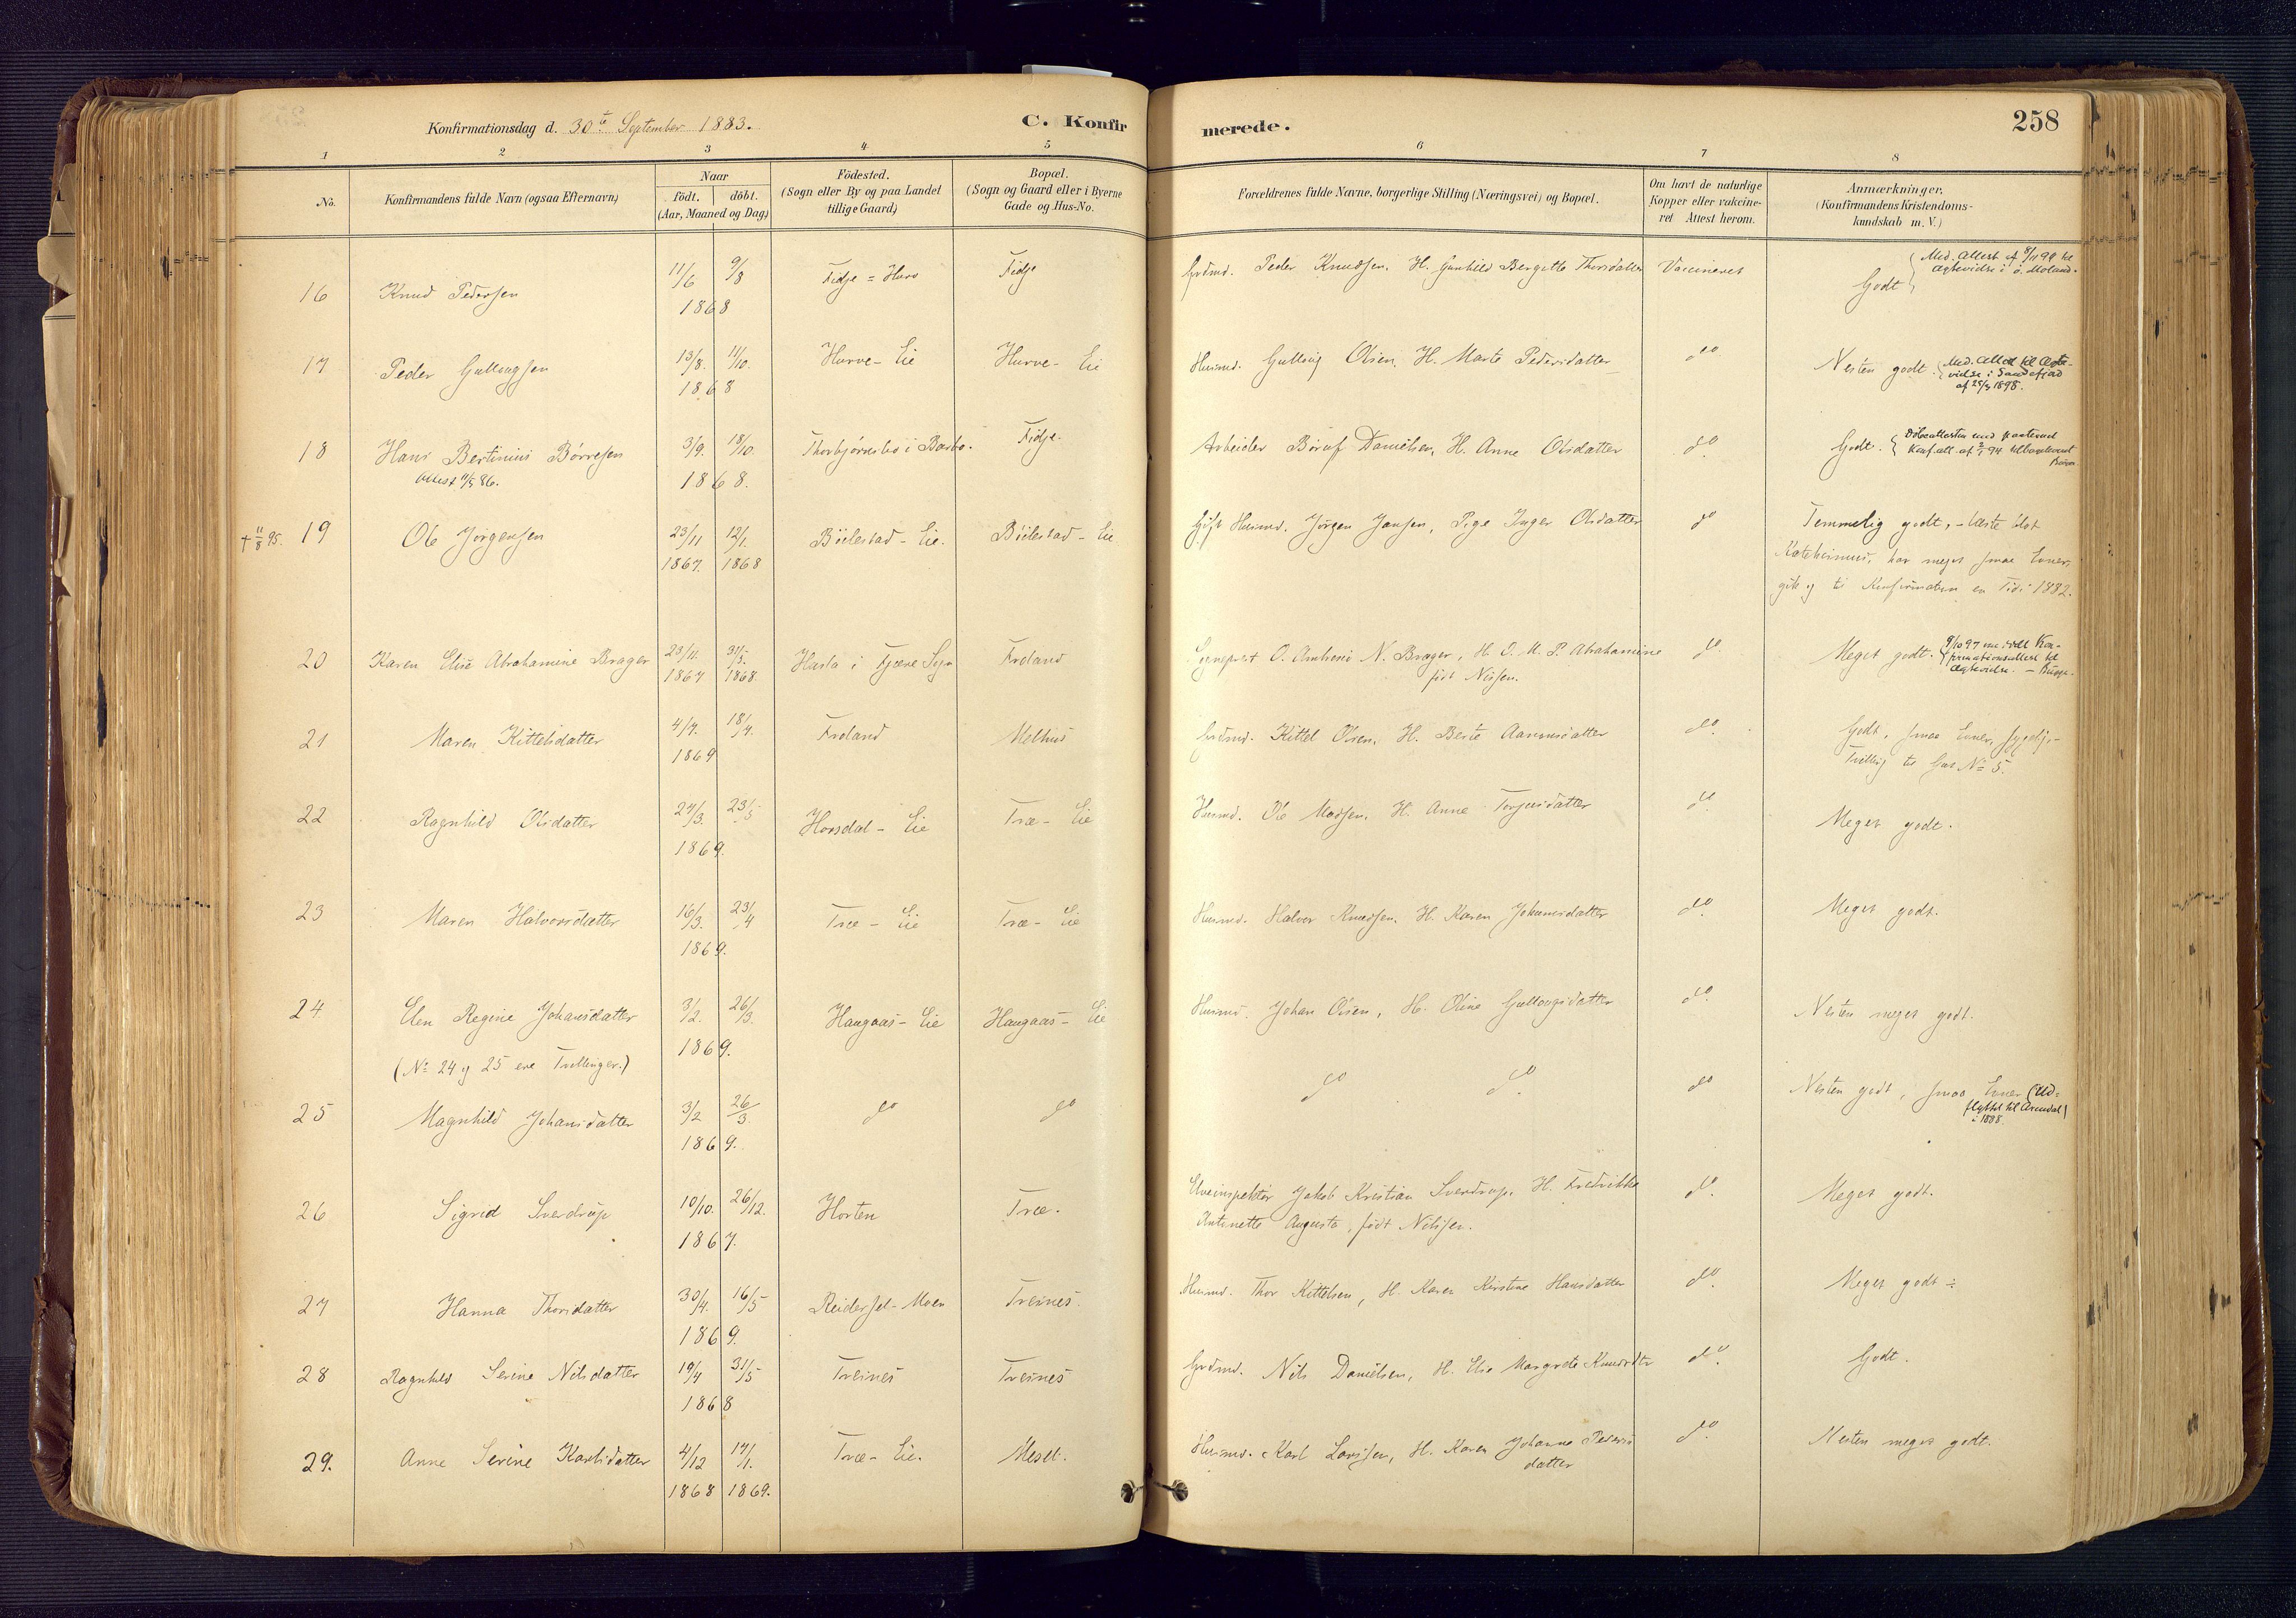 Konfirmationsdag d. 30te September 1883.
C. Konfirmerede.
258
1 2 3 4 5 6 7 8
No.
Konfirmandens fulde Navn (ogsaa Efternavn)
Naar
födt. döbt.
(Aar, Maaned og Dag)
Födested.
(Sogn eller By og paa Landet
tillige Gaard)
Bopæl.
(Sogn og Gaard eller i Byerne
Gade og Hus-No.
Forældrenes fulde Navne, borgerlige Stilling (Næringsvei) og Bopæl.
Om havt de naturlige
Kopper eller vakcine-
ret Attest herom.
Anmærkninger.
(Konfirmandens Kristendoms-
kundskab m. V.)
16 Knud Pedersen 11/6 9/8 1868 Fidje = Hurv Fidje Grdmd. Peder Knudsen, H. Gunhild Bergitte Thorsdatter Vaccineret Godt
Med. Attest af 8/11 99 til
Ægtevidse i ö. Moland.
17 Peder Gullougsen 13/8. 11/10. 1868 Hurve - Eie Hurve - Eie Husmd. Gulloug Olsen, H. Marte Pedersdatter do Nesten godt.
Med. Attest til Ægte-
vielse i Sandefjord
af 25/3 1898.
18 Hans Bertinius Börresen 3/9. 18/10. 1868. Thorbjørnsbo i Barbo. Fidje. Arbeider Böruf Danielsen, H. Anne Olsdatter do. Godt.
Attest 11/5 86.
† 11/8 95. 19 Ole Jörgensen 23/11 1867. 12/1. 1868 Böilestad - Eie. Böilestad - Eie Gift Husmd. Jörgen Jansen, Pige Inger Olsdatter do Temmelig godt, - læste blot
Katekismus, har meget smaa Evner,
gik og til Konfirmation en Tid i 1882.
20 Karen Elise Abrahamine Brager 23/11. 1867 31/5. 1868. Hasla i Fjære Sogn Froland Sogneprest O. Ambrosi N. Brager, H. O. M. P. Abrahamine
födt Nissen. do Meget godt.
9/10 97 meddelt Kon-
firmationsattest til
Ægtevidse.
21 Maren Kittelsdatter 4/4. 18/4. 1869 Froland Melhus Grdmd. Kittel Olsen, H. Berte Aanonsdatter do. Godt, smaa Evner, sygelig -
Tvilling til Gut No 5.
22 Ragnhild Olsdatter 27/3. 23/5 1869. Horsdal - Eie Træ - Eie Husmd. Ole Madsen, H. Anne Torjusdatter do. Meget godt.
23 Maren Halvorsdatter 16/3. 23/4 1869. Træ - Eie Træ - Eie Husmd. Halvor Knudsen, H. Karen Johannesdatter do. Meget godt.
24 Elen Regine Johansdatter 3/2. 26/3. 1869. Haugaas - Eie Haugaas - Eie Husmd. Johan Olsen, H. Oline Gullougsdatter do. Nesten meget godt.
(No 24 og 25 ere Tvillinger.)
25 Magnhild Johansdatter 3/2 26/3. 1869. do do do do. do Nesten godt, smaa Evner (Ud-
flyttet til Arendal)
i 1888.
26 Sigrid Sverdrup 10/10. 26/12. 1867. Horten Træ. Elveinspektör Jakob Kristian Sverdrup, H. Fredrikke
Antonette Augusta, födt Nilssen. do. Meget godt.
27 Hanna Thorsdatter 30/4. 16/5 1869. Reidersel - Moen Treines. Husmd. Thor Kittelsen, H. Karen Kirstine Hansdatter do. Meget godt ÷
28 Ragnhild Serine Nilsdatter 19/4 31/5 1868 Treines Treines Grdmd. Nils Danielsen, H. Else Margrete Knudsdtr do. Godt.
29. Anne Serine Karlsdatter 4/12 1868 17/1. 1869. Træ - Eie. Mesel. Husmd. Karl Larssen, H. Karen Johanne Peders
datter do. Nesten meget godt.